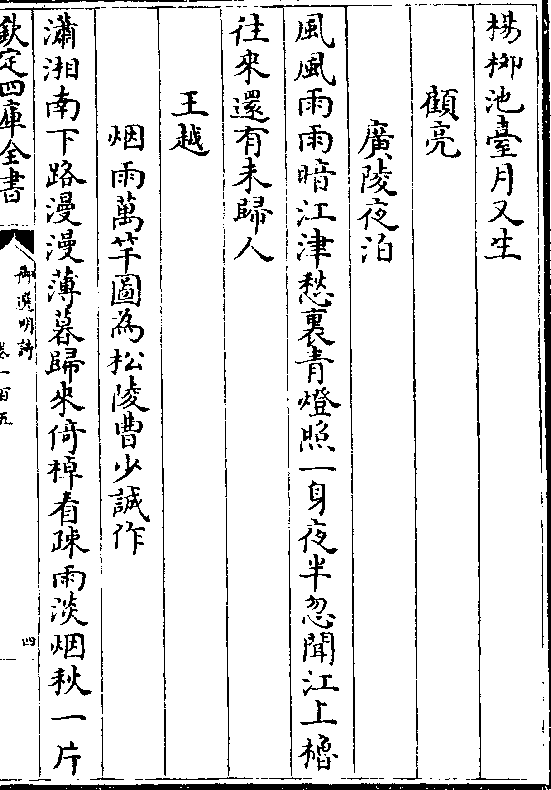 楊栁池臺月又生
顧亮
廣陵夜泊
風風雨雨暗江津愁裏青燈照一身夜半忽聞江上櫓
往來還有未歸人
王越
烟雨萬竿圖為松陵曹少誠作
瀟湘南下路漫漫薄暮歸來倚棹看疎雨淡烟秋一片
欽定四庫全書
御選明詩
卷一百五
四